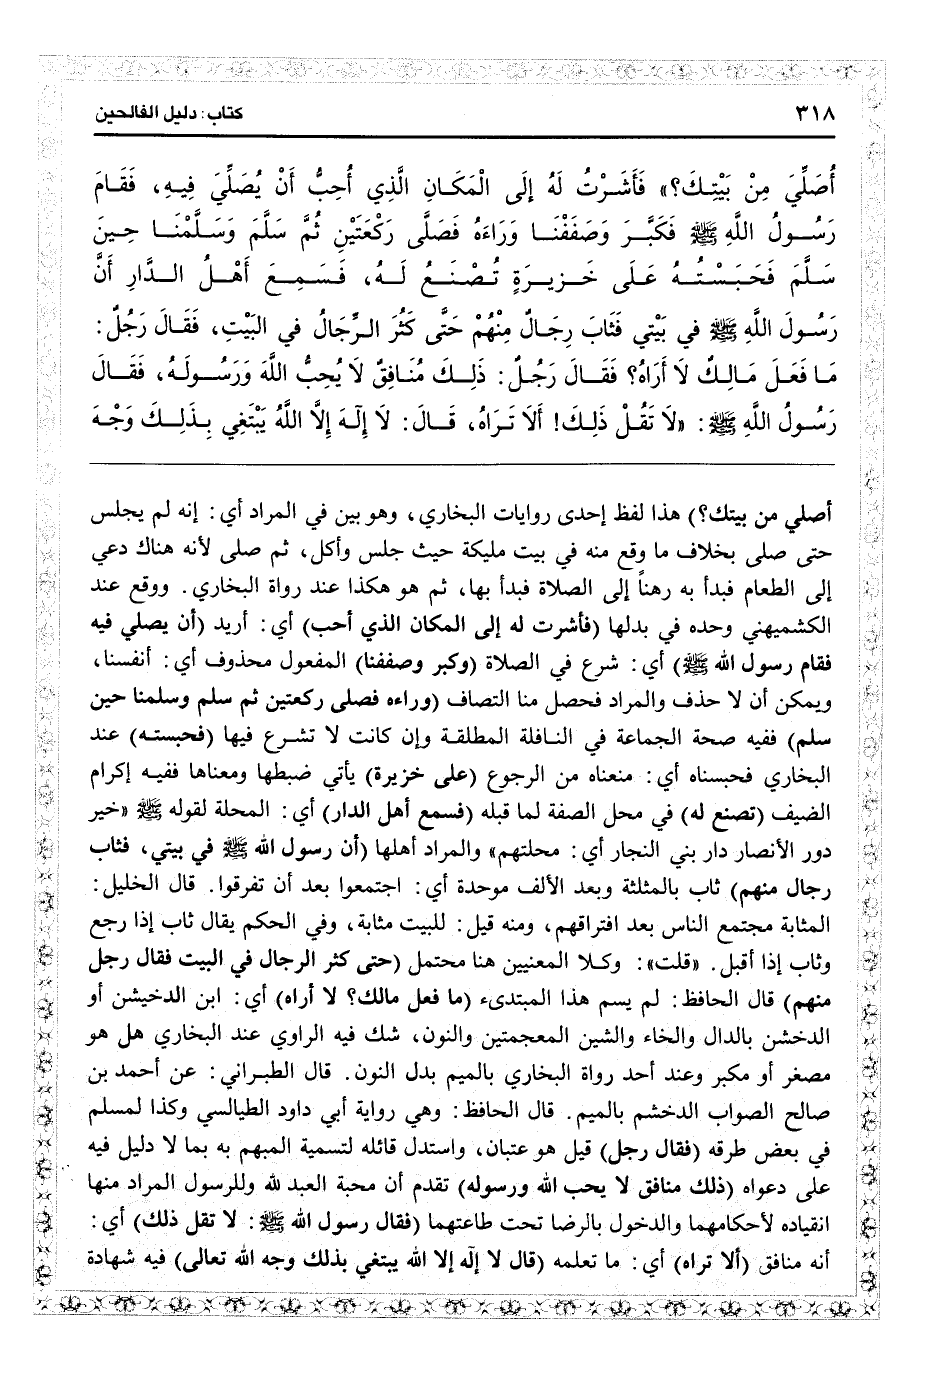 ٣١٨
كتاب: دليل الفالحين
أُصَلِّيَ مِنْ بَيْتِكَ؟» فَأَشَرْتُ لَهُ إِلَى الْمَكَانِ الَّذِي أُحِبُّ أَنْ يُصَلِّيَ فِيهِ، فَقَامَ
رَسُولُ اللَّهِ ﷺ فَكَبَّرَ وَصَفَفْنَا وَرَاءَهُ فَصَلَّى رَكْعَتَيْنِ ثُمَّ سَلَّمَ وَسَلَّمْنَا حِينَ
سَلَّمَ فَحَبَسْتُهُ عَلَى خَزِيرَةٍ تُصْنَعُ لَهُ، فَسَمِعَ أَهْلُ الدَّارِ أَنَّ
رَسُولَ اللَّهِ ﷺ في بَيْتِي فَثَابَ رِجَالٌ مِنْهُمْ حَتَّى كَثُرَ الرِّجَالُ في البَيْتِ، فَقَالَ رَجُلٌ:
مَا فَعَلَ مَالِكٌ لَا أَرَاهُ؟ فَقَالَ رَجُلٌ: ذَلِكَ مُنَافِقٌ لَا يُحِبُّ اللَّهَ وَرَسُولَهُ، فَقَالَ
رَسُولُ اللَّهِ ﷺ: «لَا تَقُلْ ذَلِكَ! أَلَا تَرَاهُ، قَالَ: لَا إِلَهَ إِلَّا اللَّهُ يَبْتَغِي بِذَلِكَ وَجْهَ
أصلي من بيتك؟) هذا لفظ إحدى روايات البخاري، وهو بين في المراد أي: إنه لم يجلس
حتى صلى بخلاف ما وقع منه في بيت مليكة حيث جلس وأكل، ثم صلى لأنه هناك دعي
إلى الطعام فبدأ به رهناً إلى الصلاة فبدأ بها، ثم هو هكذا عند رواة البخاري. ووقع عند
الكشميهني وحده في بدلها (فأشرت له إلى المكان الذي أحب) أي: أريد (أن يصلي فيه
فقام رسول الله ﷺ) أي: شرع في الصلاة (وكبر وصففنا) المفعول محذوف أي: أنفسنا،
ويمكن أن لا حذف والمراد فحصل منا التصاف (وراءه فصلى ركعتين ثم سلم وسلمنا حين
سلم) ففيه صحة الجماعة في النافلة المطلقة وإن كانت لا تشرع فيها (فحبسته) عند
البخاري فحبسناه أي: منعناه من الرجوع (على خزيرة) يأتي ضبطها ومعناها ففيه إكرام
الضيف (تصنع له) في محل الصفة لما قبله (فسمع أهل الدار) أي: المحلة لقوله ﷺ «خير
دور الأنصار دار بني النجار أي: محلتهم» والمراد أهلها (أن رسول الله ﷺ في بيتي، فثاب
رجال منهم) ثاب بالمثلثة وبعد الألف موحدة أي: اجتمعوا بعد أن تفرقوا. قال الخليل:
المثابة مجتمع الناس بعد افتراقهم، ومنه قيل: للبيت مثابة، وفي الحكم يقال ثاب إذا رجع
وثاب إذا أقبل. «قلت»: وكلا المعنيين هنا محتمل (حتى كثر الرجال في البيت فقال رجل
منهم) قال الحافظ: لم يسم هذا المبتدىء (ما فعل مالك؟ لا أراه) أي: ابن الدخيشن أو
الدخشن بالدال والخاء والشين المعجمتين والنون، شك فيه الراوي عند البخاري هل هو
مصغر أو مكبر وعند أحد رواة البخاري بالميم بدل النون. قال الطبراني: عن أحمد بن
صالح الصواب الدخشم بالميم. قال الحافظ: وهي رواية أبي داود الطيالسي وكذا لمسلم
في بعض طرقه (فقال رجل) قيل هو عتبان، واستدل قائله لتسمية المبهم به بما لا دليل فيه
على دعواه (ذلك منافق لا يحب الله ورسوله) تقدم أن محبة العبد لله وللرسول المراد منها
انقياده لأحكامهما والدخول بالرضا تحت طاعتهما (فقال رسول الله ﷺ: لا تقل ذلك) أي:
أنه منافق (ألا تراه) أي: ما تعلمه (قال لا إلٰه إلا الله يبتغي بذلك وجه الله تعالى) فيه شهادة